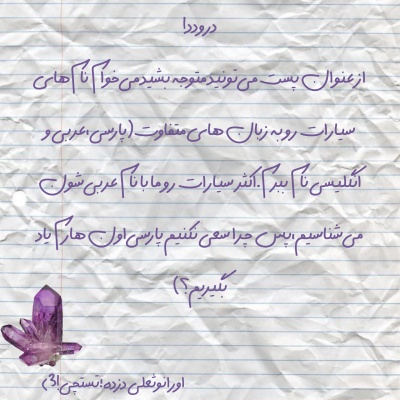 درود!
از عنوان پست می تونید متوجه بشید می خوام نام های
سیارات رو به زبان های متفاوت (پارسی، عربی و
انگلیسی نام ببرم. اکثر سیارات رو ما با نام عربی شون
می شناسیم، پس چرا سعی نکنیم پارسی اون هارم یاد
بگیریم؟)